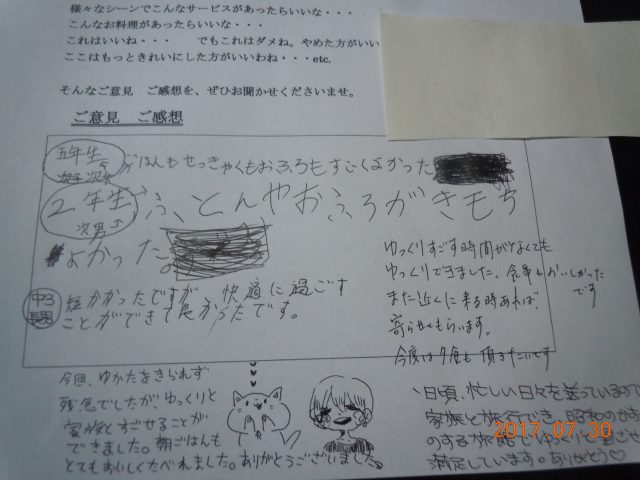 様々なシーンでこんなサービスがあったらいいな・・・
こんなお料理があったらいいな・・・
これはいいね・・・　でもこれはダメね。やめた方がいい
ここはもっときれいにした方がいいわね・・・etc.
そんなご意見　ご感想を、ぜひお聞かせくださいませ。
ご意見　ご感想
五年生
ごはんもせっきゃくもおふろもすごくよかった
2年生
次男
ふとんやおふろがきもち
よかった。
中3
長男
短かかったですが 快適に過ごす
ことができて良かったです。
ゆっくりすごす時間がなくても
ゆっくりできました。食事もおいしかった
です
また近くに来る時あれば、
寄らせてもらいます。
今度は夕食も頂きたいです
今回、ゆかたをきられず
残念でしたが、ゆっくりと
家族とすごせることが
できました。朝ごはんも
とてもおいしくたべれました。ありがとうございました。
日頃、忙しい日々を送っているので
家族と旅行でき、昭和のかおり
のする旅館で
満足しています。ありがとう♡
2017.07.30